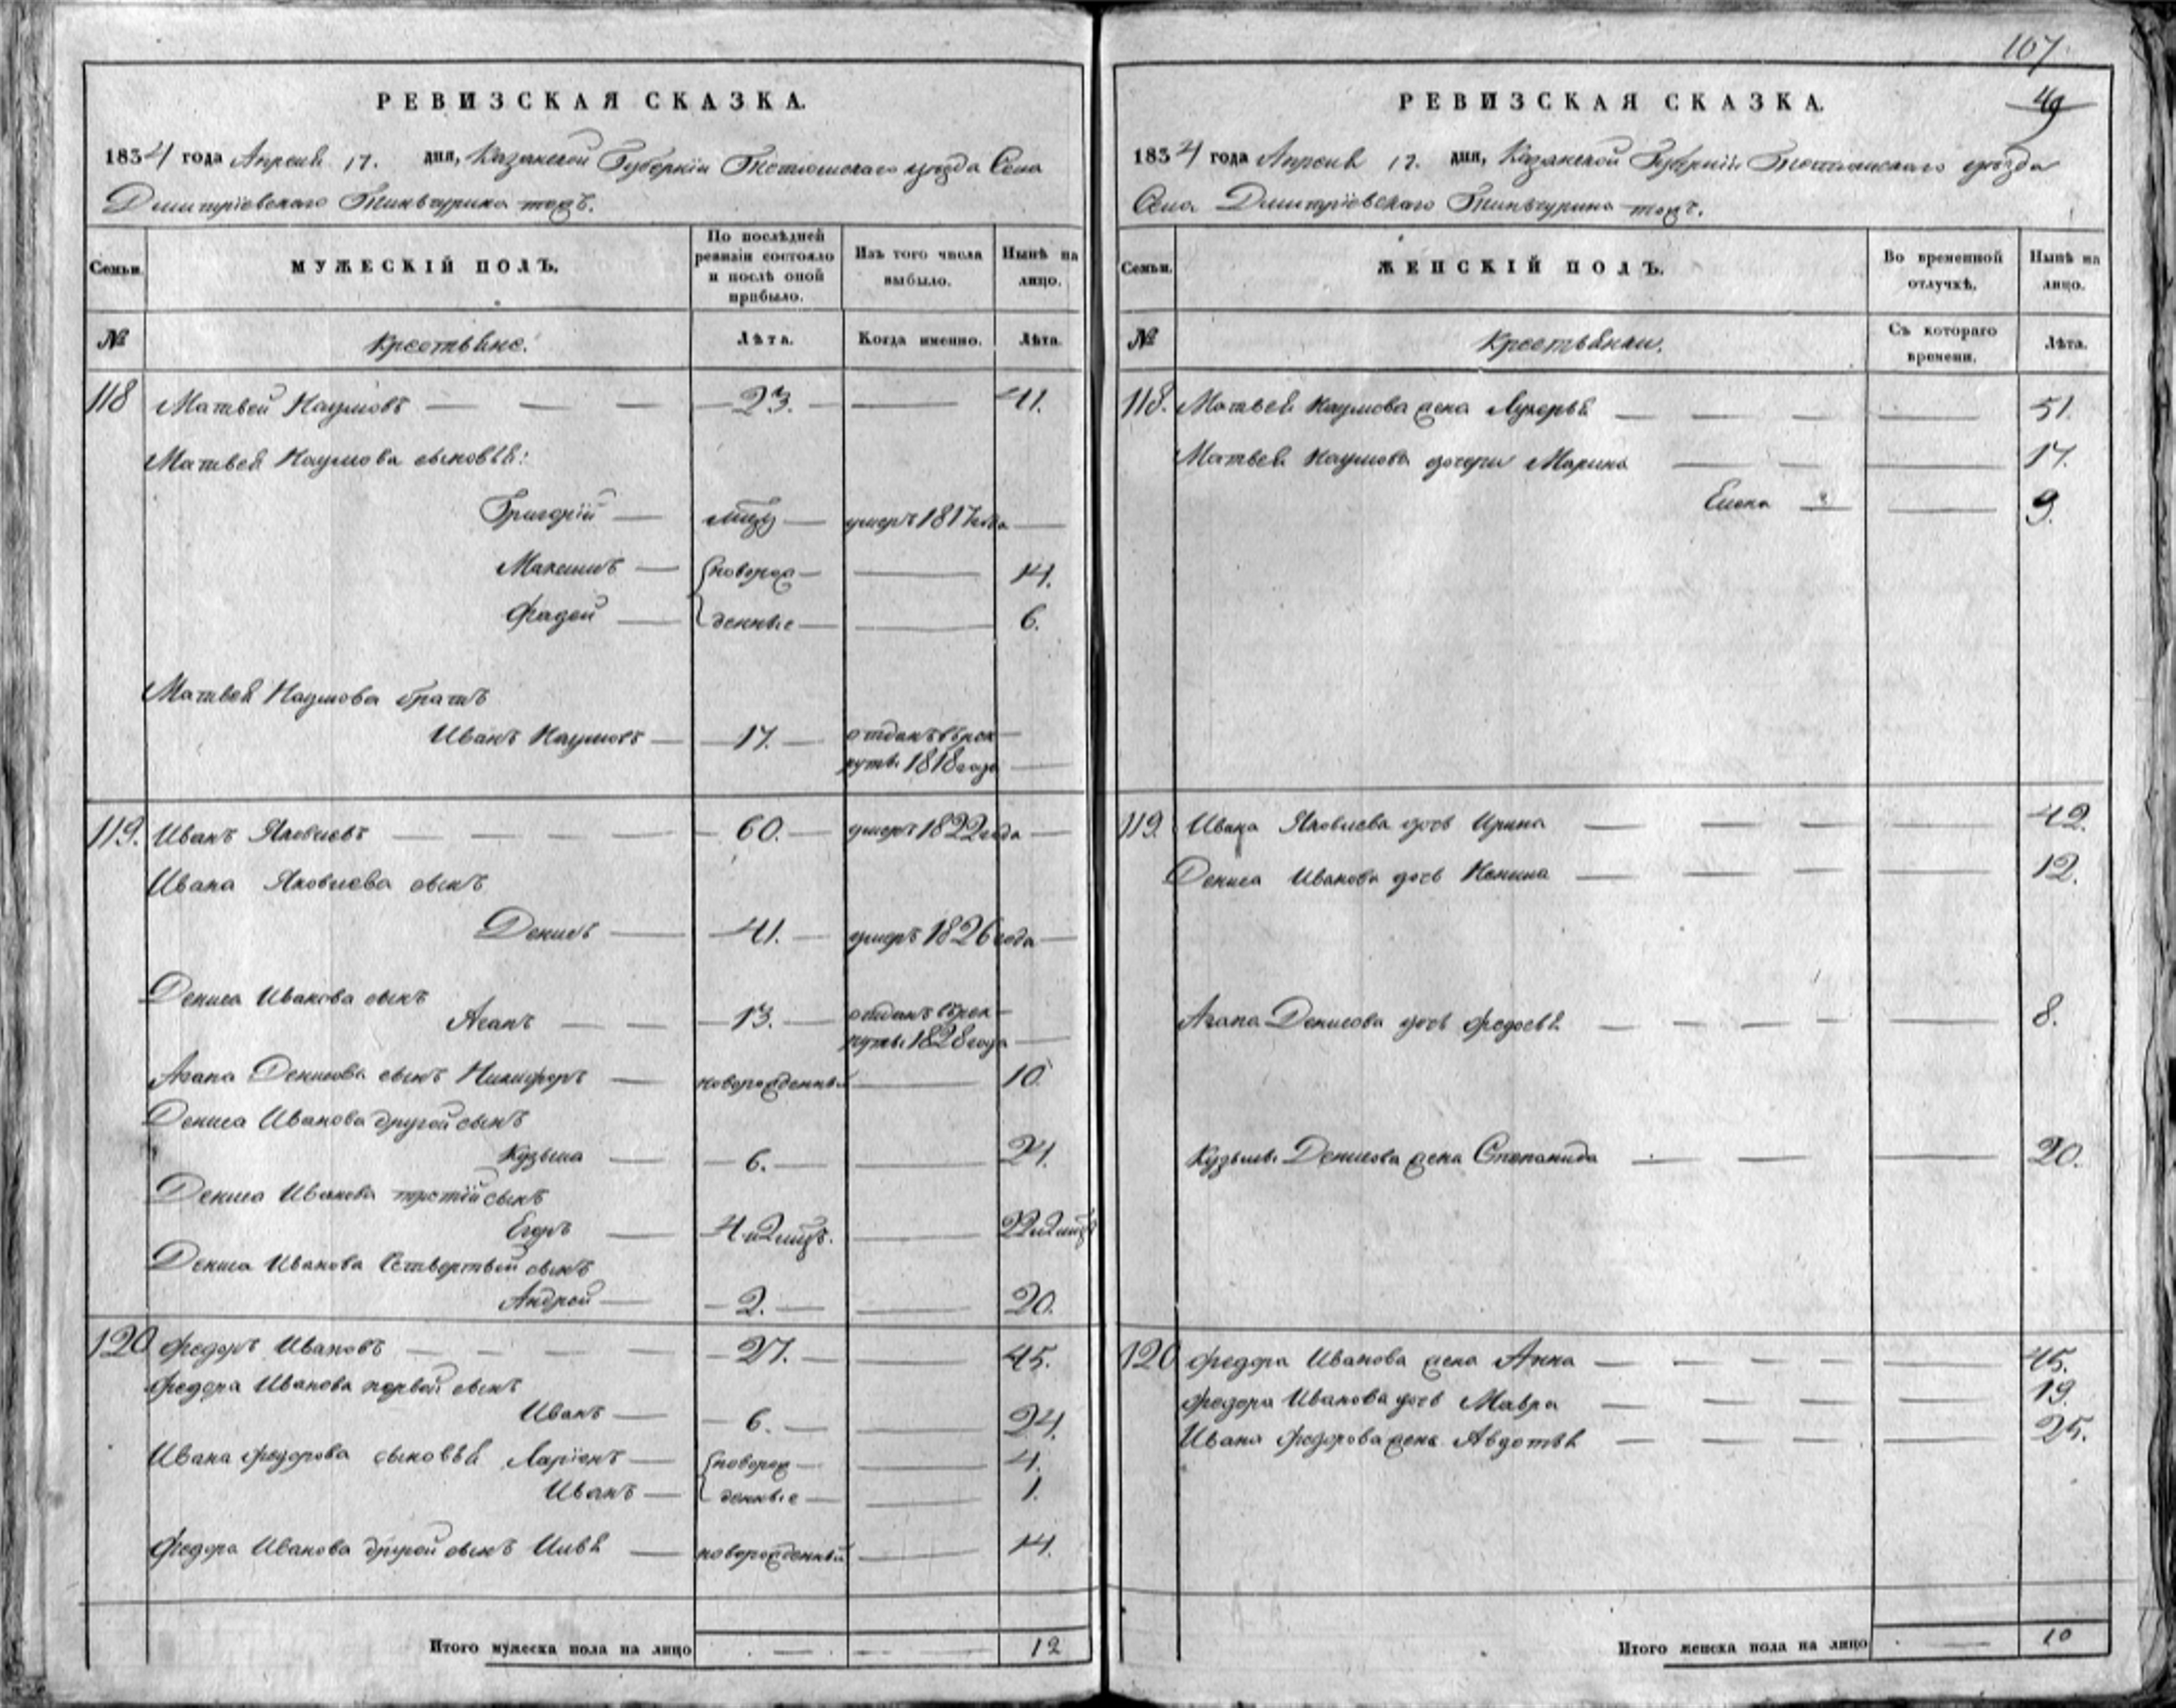 РЕВИЗСКАЯ СКАЗКА.
1834 года Апреля 17. дня, Казанской Губернiи Тетюшскаго уѣзда Села
Дмитрiевскаго Тиньчурина тожъ.
Семьи.
МУЖЕСКIЙ ПОЛЪ.
По послѣдней
ревизiи состояло
и послѣ оной
прибыло.
Изъ того числа
выбыло.
Нынѣ на
лицо.
№
Крестьяне.
Лѣта.
Когда именно.
Лѣта.
118 Матвей Наумовъ 23. 41.
Матвея Наумова сыновья:
Григорiй умеръ 1817 года
Максимъ новорож 14.
Фадей денные 6.
Матвея Наумова братъ
Иванъ Наумовъ 17. отданъ въ рек
руты 1818 года
119. Иванъ Яковлевъ 60. умеръ 1822 года
Ивана Яковлева сынъ
Денисъ 41. умеръ 1826 года
Дениса Иванова сынъ
Агапъ 13. отданъ въ рек
руты 1828 года
Агапа Денисова сынъ Никифоръ новорожденный 10
Дениса Иванова другой сынъ
Кузьма 6. 24.
Дениса Иванова третiй сынъ
Егоръ 4 и 2 мцъ. 22 и 2 мцъ
Дениса Иванова Четвертый сынъ
Андрей 2. 20.
120 Федоръ Ивановъ 27. 45.
Федора Иванова первой сынъ
Иванъ 6. 24.
Ивана Федорова сыновья Ларiонъ новорож 4.
Иванъ денные 1.
Федора Иванова другой сынъ Илья новорожденный 14.
Итого мужеска пола на лицо 12
107.
49
РЕВИЗСКАЯ СКАЗКА.
1834 года Апреля 17. дня, Казанской Губернiи Тетюшскаго уѣзда
Села Дмитрiевскаго Тиньчурина тожъ.
Семьи.
ЖЕНСКIЙ ПОЛЪ.
Во временной
отлучкѣ.
Нынѣ на
лицо.
№
Крестьянки.
Съ котораго
времени.
Лѣта.
118. Матвея Наумова жена Лукерья 51.
Матвея Наумова дочери Марина 17.
Елена 9.
119. Ивана Яковлева дочь Ирина 42.
Дениса Иванова дочь 12.
Агапа Денисова дочь Федосья 8.
Кузьмы Денисова жена Степанида 20.
120 Федора Иванова жена Анна 45.
Федора Иванова дочь Мавра 19.
Ивана Федорова жена Авдотья 25.
Итого женска пола на лицо 10